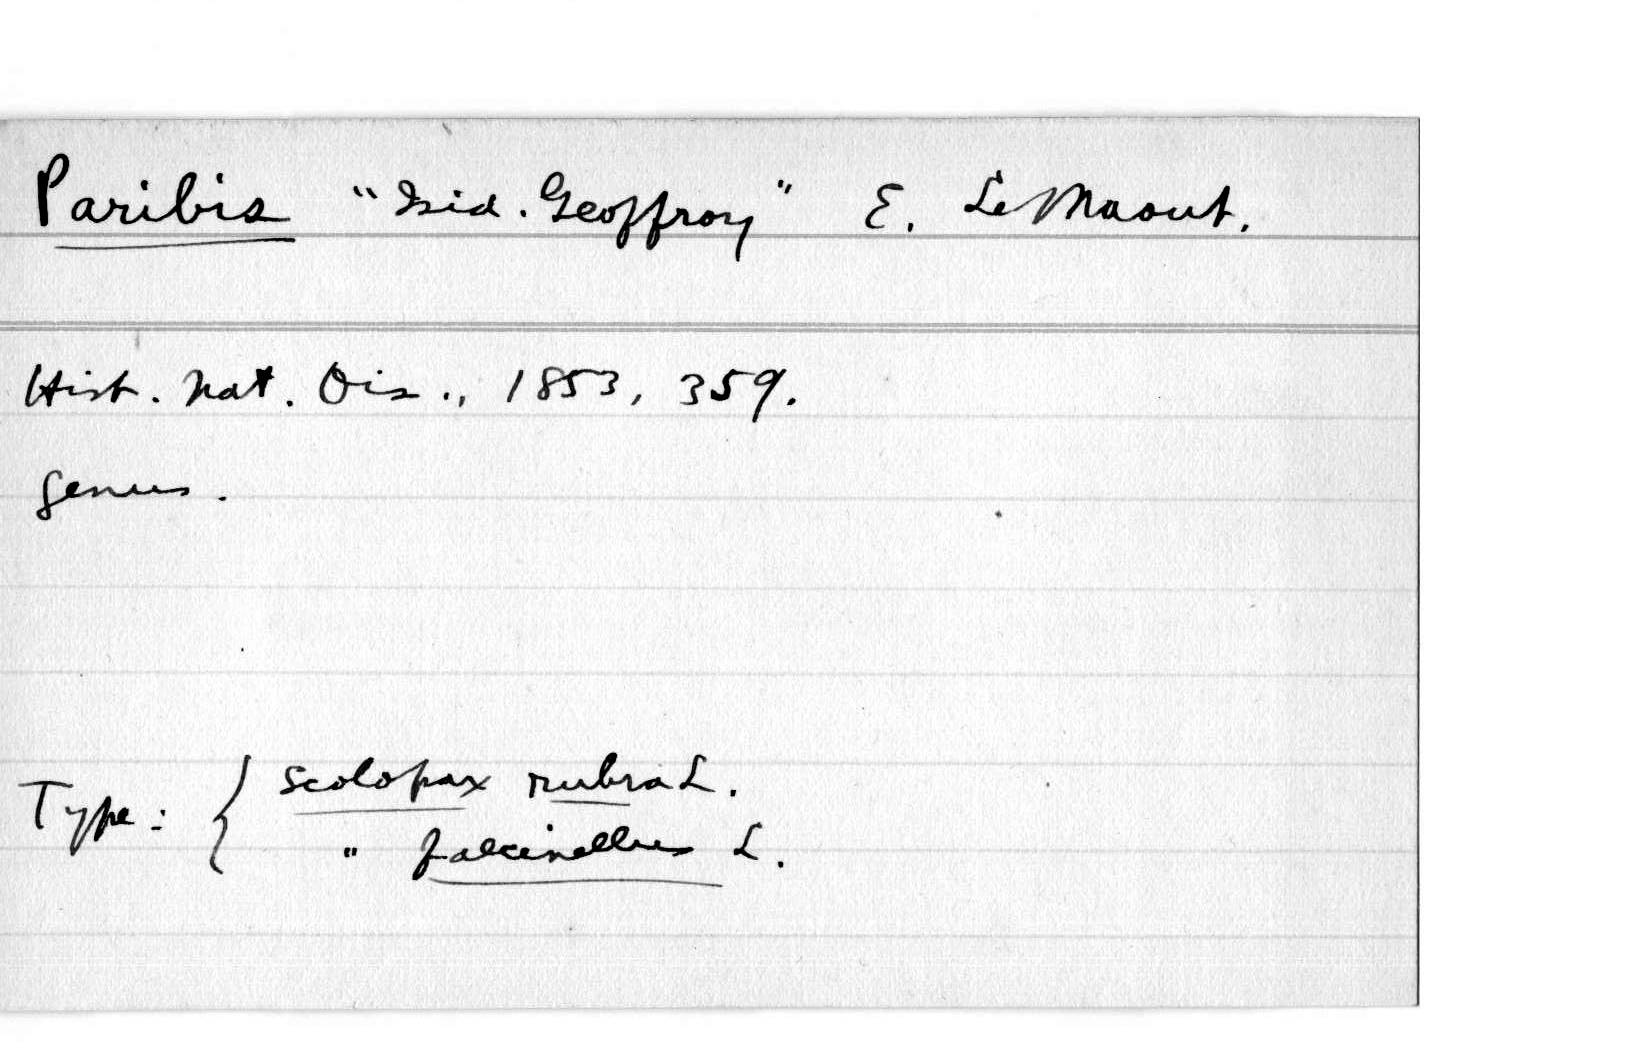 Paribis "Isid. Geoffroy" E. Le Maout.
Hist. Nat. Ois., 1853, 359.
genus.
Type: { Scolopax rubra L.
" falcinellus L.